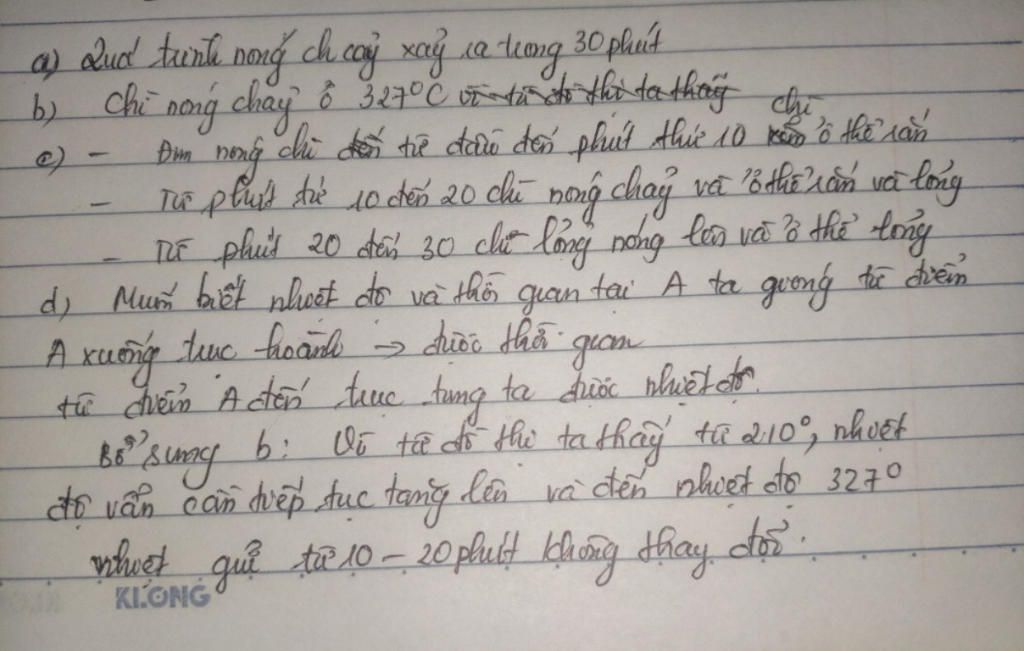 a) Quá trình nóng chảy xảy ra trong 30 phút
b) Chì nóng chảy ở 327°C vì từ đồ thị ta thấy
c) - Đun nóng chì đến từ đầu đến phút thứ 10 chì ở thể rắn
- Từ phút từ 10 đến 20 chì nóng chảy và ở thể rắn và lỏng
- Từ phút 20 đến 30 chì lỏng nóng lên và ở thể lỏng
d) Muốn biết nhiệt độ và thời gian tại A ta gióng từ điểm
A xuống trục hoành → được thời gian
từ điểm A đến trục tung ta được nhiệt độ.
Bổ sung b: Vì từ đồ thị ta thấy từ 210°, nhiệt
độ vẫn còn tiếp tục tăng lên và đến nhiệt độ 327°
nhiệt giữ từ 10 - 20 phút không thay đổi.
KLONG